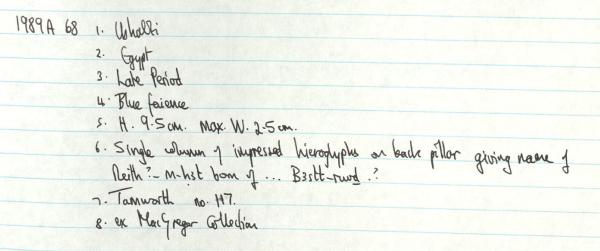 1989A 68 1. Ushabti
2. Egypt
3. Late Period
4. Blue faience
5. H. 9.5cm. Max. W. 2.5cm.
6. Single column of impressed hieroglyphs on back pillar giving name of
Neith?-m-h3t born of ... B3stt-rwd.?
7. Tamworth no. H7.
8. ex MacGregor Collection